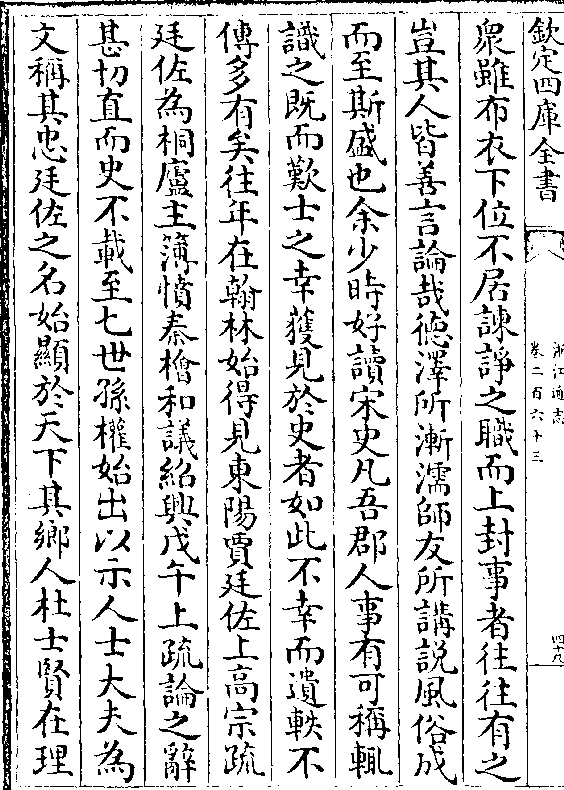 欽定四庫全書
浙江通志
卷二百六十三
四十八
衆雖布衣下位不居諫諍之職而上封事者往往有之
豈其人皆善言論哉徳澤所漸濡師友所講説風俗成
而至斯盛也余少時好讀宋史凡吾郡人事有可稱輒
識之既而歎士之幸獲見於史者如此不幸而遺軼不
傳多有矣往年在翰林始得見東陽賈廷佐上高宗疏
廷佐為桐廬主簿憤秦檜和議紹興戊午上疏論之辭
甚切直而史不載至七世孫權始出以示人士大夫為
文稱其忠廷佐之名始顯於天下其鄉人杜士賢在理